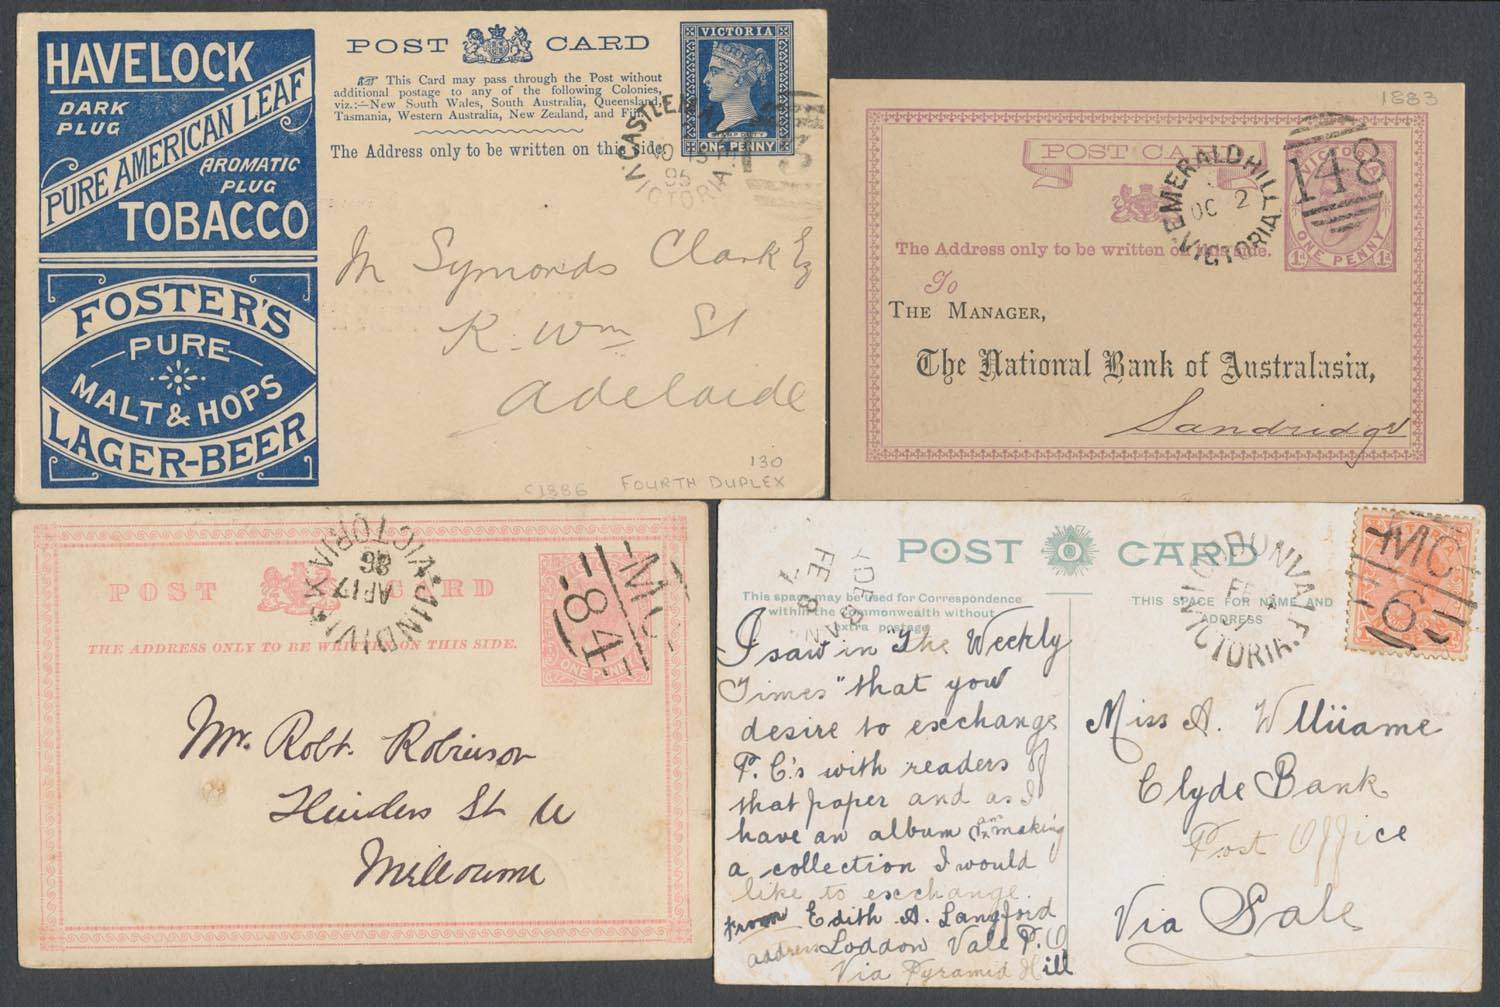 HAVELOCK
DARK
PLUG
PURE AMERICAN LEAF
AROMATIC
PLUG
TOBACCO
FOSTER'S
PURE
MALT & HOPS
LAGER-BEER
POST CARD
This Card may pass through the Post without
additional postage to any of the following Colonies,
viz.:—New South Wales, South Australia, Queensland,
Tasmania, Western Australia, New Zealand, and Fiji.
The Address only to be written on this side.
VICTORIA
STAMP DUTY
ONE PENNY
CASTLEMAINE
95
VICTORIA
M Symonds Clark Esq
K. Wm St
Adelaide
130
c1886 FOURTH DUPLEX
1883
POST CARD
EMERALD HILL
OC 2
VICTORIA
148
VICTORIA
ONE PENNY
1d 1d
The Address only to be written on this side.
To
THE MANAGER,
The National Bank of Australasia,
Sandridge
POST CARD
THE ADDRESS ONLY TO BE WRITTEN ON THIS SIDE.
JINDIVICK
AP 17
96
VICTORIA
MC
84
ONE PENNY
Mr. Robt. Robinson
Flinders St W
Melbourne
POST CARD
This space may be used for Correspondence
within the Commonwealth without
extra postage
THIS SPACE FOR NAME AND
ADDRESS
FE 7
8
DUNVALE
FE
VICTORIA
MC
6
I saw in "The Weekly
Times" that you
desire to exchange
P. C's with readers of
that paper and as I
have an album & am making
a collection I would
like to exchange.
from Edith A. Langford
address Loddon Vale P.O
Via Pyramid Hill
Miss A. Wlliiame
Clyde Bank
Post Office
Via Sale